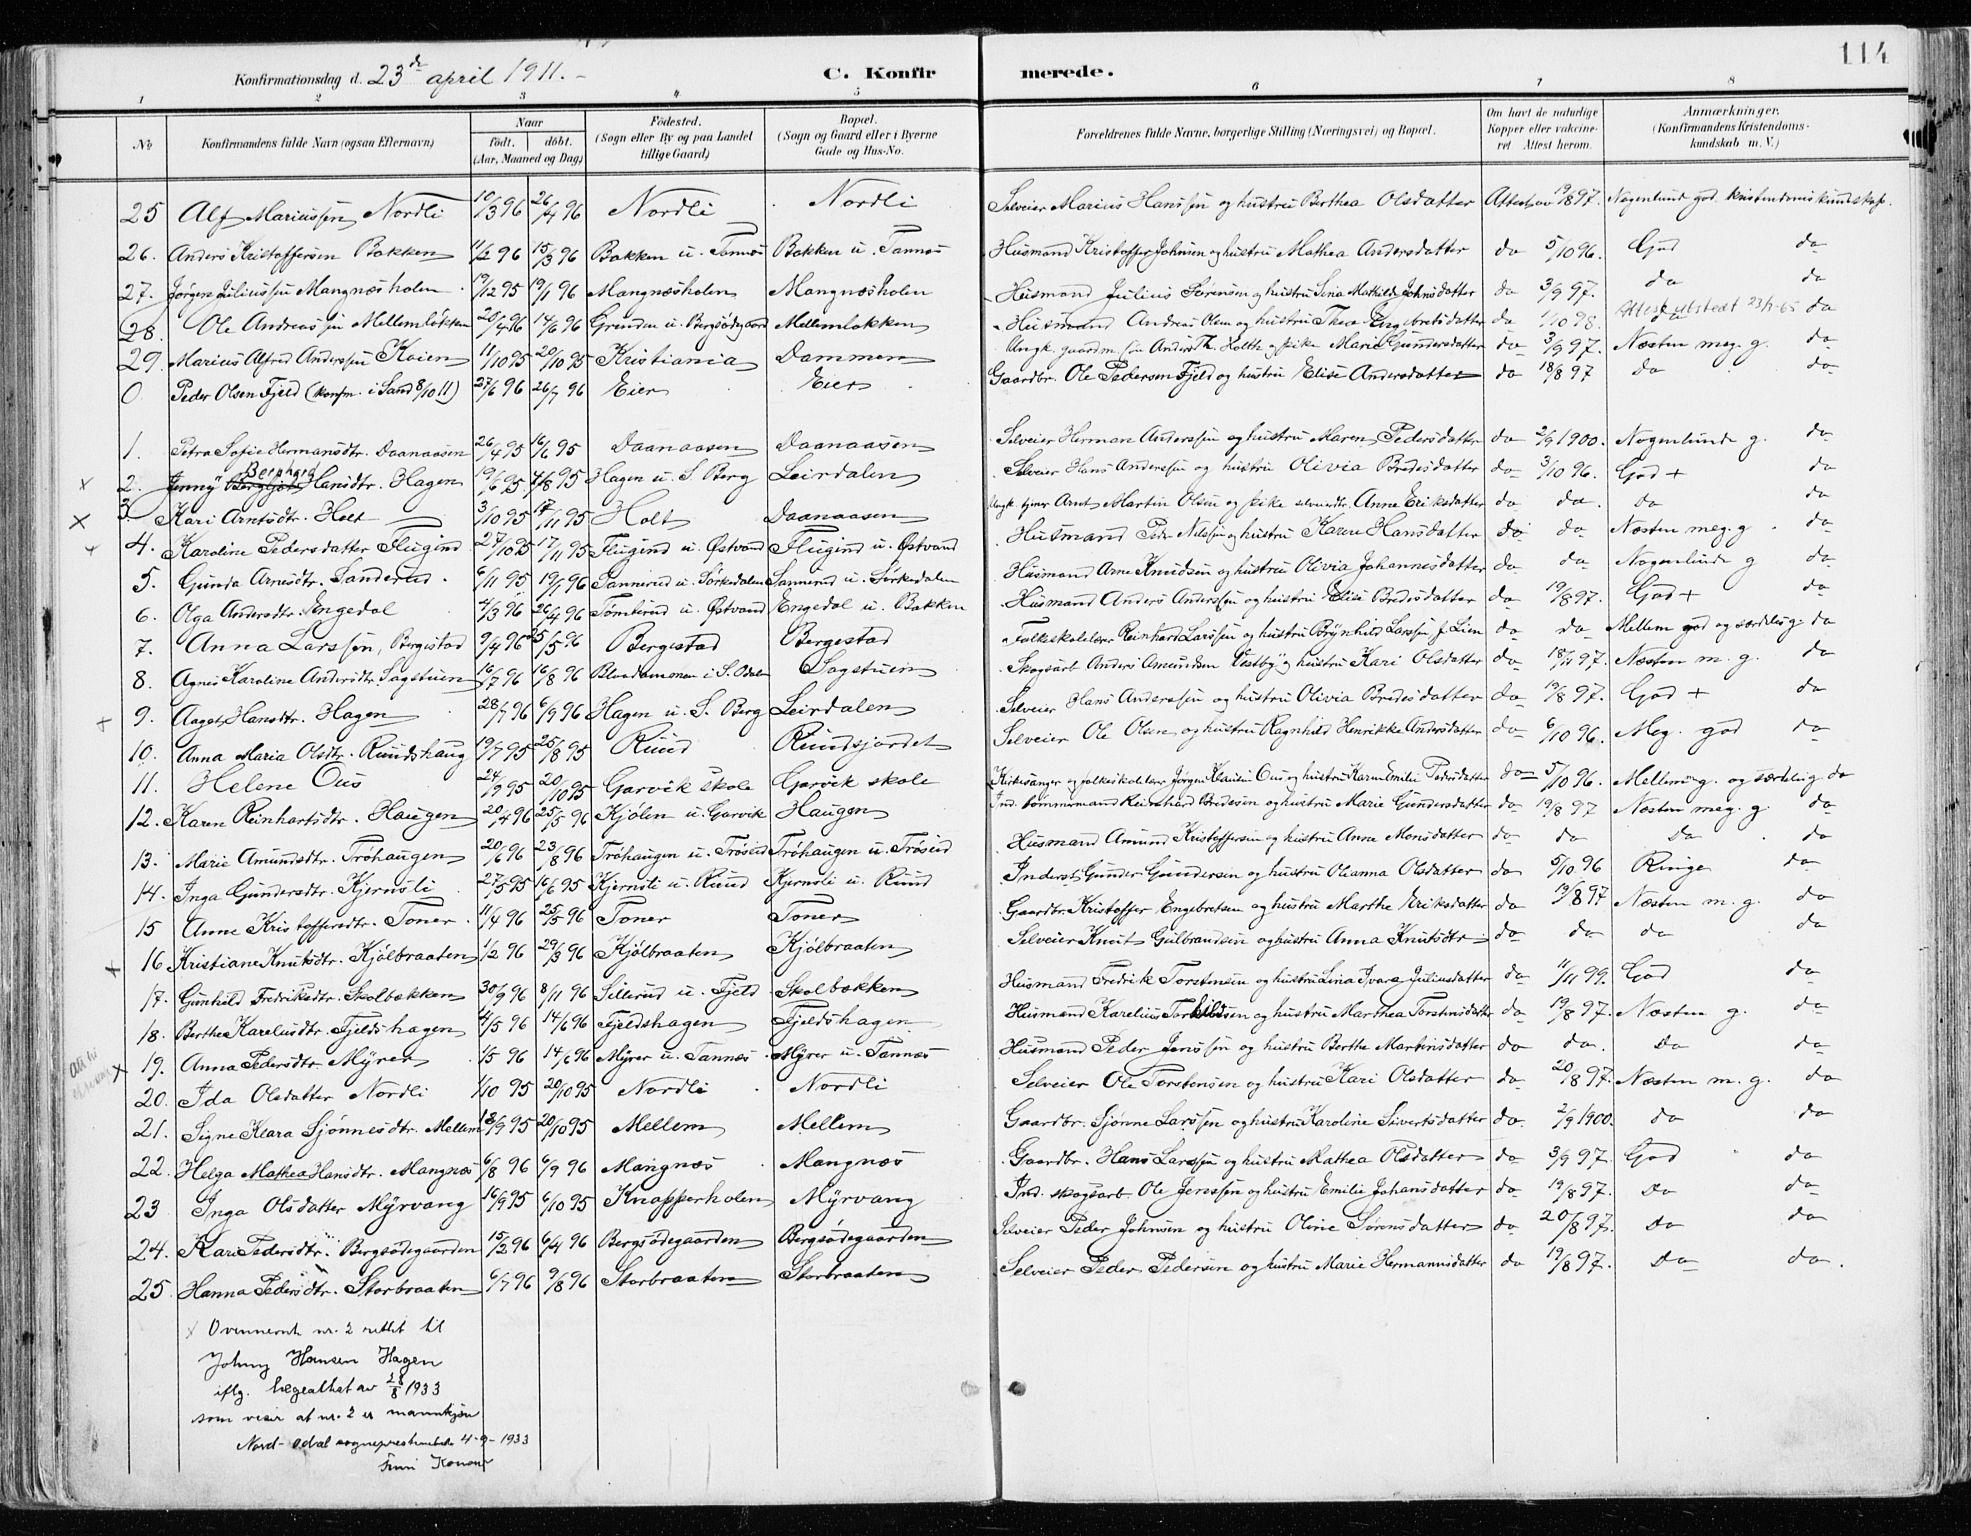 114
Konfirmationsdag d. 23de april 1911.
C. Konfirmerede.
1 2 3 4 5 6 7 8
No
Konfirmandens fulde Navn (ogsaa Efternavn)
Naar
født. døbt.
(Aar, Maaned og Dag)
Fødested.
(Sogn eller By og paa Landet tillige Gaard)
Bopæl.
(Sogn og Gaard eller i Byerne Gade og Hus-No.
Forældrenes fulde Navne, borgerlige Stilling (Næringsvei) og Bopæl.
Om havt de naturlige Kopper eller vakcineret Attest herom.
Anmærkninger.
(Konfirmandens Kristendomskundskab m. V.)
25 Alf Mariussen Nordli 10/3 96 26/4 96 Nordli Nordli Selveier Marius Hanssen og hustru Berthea Olsdatter Attest av 19/8 97. Nogenlunde god kristendomskundskap.
26. Anders Kristoffersen Bakken 11/2 96 15/3 96 Bakken u. Tannæs Bakken u. Tannæs Husmand Kristoffer Johnsen og hustru Mathea Andersdatter do 5/10 96. God do
27. Jørgen Juliussen Mangnæsholen 19/12 95 19/1 96 Mangnæsholen Mangnæsholen Husmand Julius Sørensen og hustru Lina Mathilde Johnsdatter do 3/9 97. do do
28. Ole Andreassen Mellemløkken 20/4 96 14/6 96 Grinden u. Bergsødegaard Mellemløkken Husmand Andreas Olsen og hustru Thea Engebretsdatter do 1/10 98. Attest utstedt 23/7-65 do
29. Marius Alfred Anderssen Koien 11/10 95 20/10 95 Kristiania Dammen Ungk. gaardm. søn Anders Th. Holth og pike Marie Gundersdatter do 3/9 97. Næsten meg. g. do
0 Peder Olsen Fjeld (konfm. i Sand 8/10 11) 27/6 96 26/7 96 Eier Eier Gaardbr. Ole Pedersen Fjeld og hustru Elise Andersdatter do 18/8 97 do do
1. Petra Sofie Hermansdtr. Daanaasen 26/4 95 16/6 95 Daanaasen Daanaasen Selveier Herman Anderssen og hustru Maren Pedersdatter do 2/9 1900. Nogenlunde g. do
2. Jenny Bergljot Bernhard Hansdtr. Hagen 19/6 95 4/8 95 Hagen u. S. Berg Leirdalen Selveier Hans Anderssen og hustru Olivia Bredesdatter do 3/10 96. God + do
3. Kari Arntsdtr. Holt 3/10 95 17/11 95 Holt Daanaasen Ungk. tjener Arnt Martin Olsen og pike selveierdtr. Anne Eriksdatter do do. do do
4. Karoline Pedersdatter Flugind 27/10 95 17/11 95 Flugind u. Østvand Flugind u. Østvand Husmand Peder Nilssen og hustru Karen Hansdatter do do Næsten meg. g do
5. Gunda Arnesdtr. Sanderud. 6/11 95 19/1 96 Sannerud u. Sørkedalen Sannerud u. Sørkedalen Husmand Arne Knudsen og hustru Olivia Johannesdatter do do. Nogenlunde g do
6. Olga Andersdtr. Engedal 4/3 96 26/4 96 Tømterud u. Østvand Engedal u. Bakken Husmand Anders Anderssen og hustru Elise Bredesdatter do 19/8 97. God + do
7. Anna Larssen, Bergestad 9/4 96 25/5 96 Bergestad Bergestad Folkeskolelærer Reinhard Larssen og hustru Brynhild Larssen f. Lien do do. Mellem god og særdeles g. do
8. Agnes Karoline Andersdtr. Sagstuen 16/7 96 16/8 96 Bloddammen i S. Odalen Sagstuen Skogsarb. Anders Amundsen Vestby og hustru Kari Olsdatter do 18/11 97. Næsten m. g. do
9. Aagot Hansdtr. Hagen 28/7 96 6/9 96 Hagen u. S. Berg Leirdalen Selveier Hans Anderssen og hustru Olivia Bredesdatter do 19/8 97. God + do
10. Anna Maria Olsdtr. Rundshaug 19/7 95 25/8 95 Ruud Rundsjordet Selveier Ole Olsen og hustru Ragnhild Henrikke Andersdatter do 6/10 96. Meg. god do
11. Helene Ous 24/9 95 20/10 95 Garvik skole Garvik skole Kirkesanger og folkeskolelærer Jørgen Ous og hustru Karen Emilie Pedersdatter do 5/10 96. Mellem g. og særdeles g. do
12. Karen Reinhartsdtr. Haugen 20/4 96 25/5 96 Kjølen u. Garvik Haugen Ind. tømmermand Reinhard Bredesen og hustru Marie Gundersdatter do 19/8 97 Næsten meg. g do
13. Marie Amundsdtr. Trøhaugen 20/6 96 23/8 96 Trøhaugen u. Trøseid Trøhaugen u. Trøseid Husmand Amund Kristoffersen og hustru Anne Monsdatter do do do do
14. Inga Gundersdtr. Kjernsli 27/5 95 16/6 95 Kjernsli u. Ruud Kjernsli u. Ruud Inderst Gunder Gundersen og hustru Olianna Olsdatter do 5/10 96 Ringe do
15 Anne Kristoffersdtr. Toner 11/4 96 25/5 96 Toner Toner Gaardbr. Kristoffer Engebretsen og hustru Marthe Eriksdatter do 19/8 97 Næsten m. g. do
16 Kristiane Knutsdtr. Kjølbraaten 1/2 96 29/3 96 Kjølbraaten Kjølbraaten Selveier Knut Gulbrandsen og hustru Anna Knutsdtr. do do do do
17. Gunhild Fredriksdtr. Skolbækken 30/9 96 8/11 96 Sillerud u. Fjeld Skolbækken Husmand Fredrik Torstensen og hustru Lina Ivara Juliusdatter do 11/11 99. God do
18. Berthe Kareliusdtr. Fjeldshagen 4/5 96 14/6 96 Fjeldshagen Fjeldshagen Husmand Karelius Torkildsen og hustru Marthea Torstensdatter do 19/8 97. Næsten g. do
19. Anna Pedersdtr. Myrer 1/5 96 14/6 96 Myrer u. Tannæs Myrer u. Tannæs Husmand Peder Jenssen og hustru Berthe Martinsdatter do do. do do
20. Ida Olsdatter Nordli 1/10 95 20/10 95 Nordli Nordli Selveier Ole Torstensen og hustru Kari Olsdatter do 20/8 97. Næsten m. g. do
21. Signe Klara Sjønnesdtr. Mellem 18/9 95 20/10 95 Mellem Mellem Gaardbr. Sjønne Larssen og hustru Karoline Sivertsdatter do 2/9 1900. do do
22. Helga Mathea Hansdtr. Mangnæs 6/8 96 6/9 96 Mangnæs Mangnæs Gaardbr. Hans Larssen og hustru Mathea Olsdatter do 3/9 97. God do
23 Inga Olsdatter Myrvang 16/9 95 6/10 95 Knapperholen Myrvang Ind. skogsarb. Ole Jenssen og hustru Emilie Johansdatter do 19/8 97. do do
24. Kari Pedersdtr. Bergsødegaarden 15/2 96 6/4 96 Bergsødegaarden Bergsødegaarden Selveier Peder Johnsen og hustru Oline Sørensdatter do 20/8 97. do do
25. Hanna Pedersdtr. Storbraaten 6/7 96 9/8 96 Storbraaten Storbraaten Selveier Peder Pedersen og hustru Marie Hermannsdatter do 19/8 97. do do.
x Ovennevnte nr. 2 rettet til
Johny Hansen Hagen
iflg. lægeattest av 28/8 1933
som viser at nr. 2 er mannkjøn
Nord-Odal sogneprestembede 4-9-1933